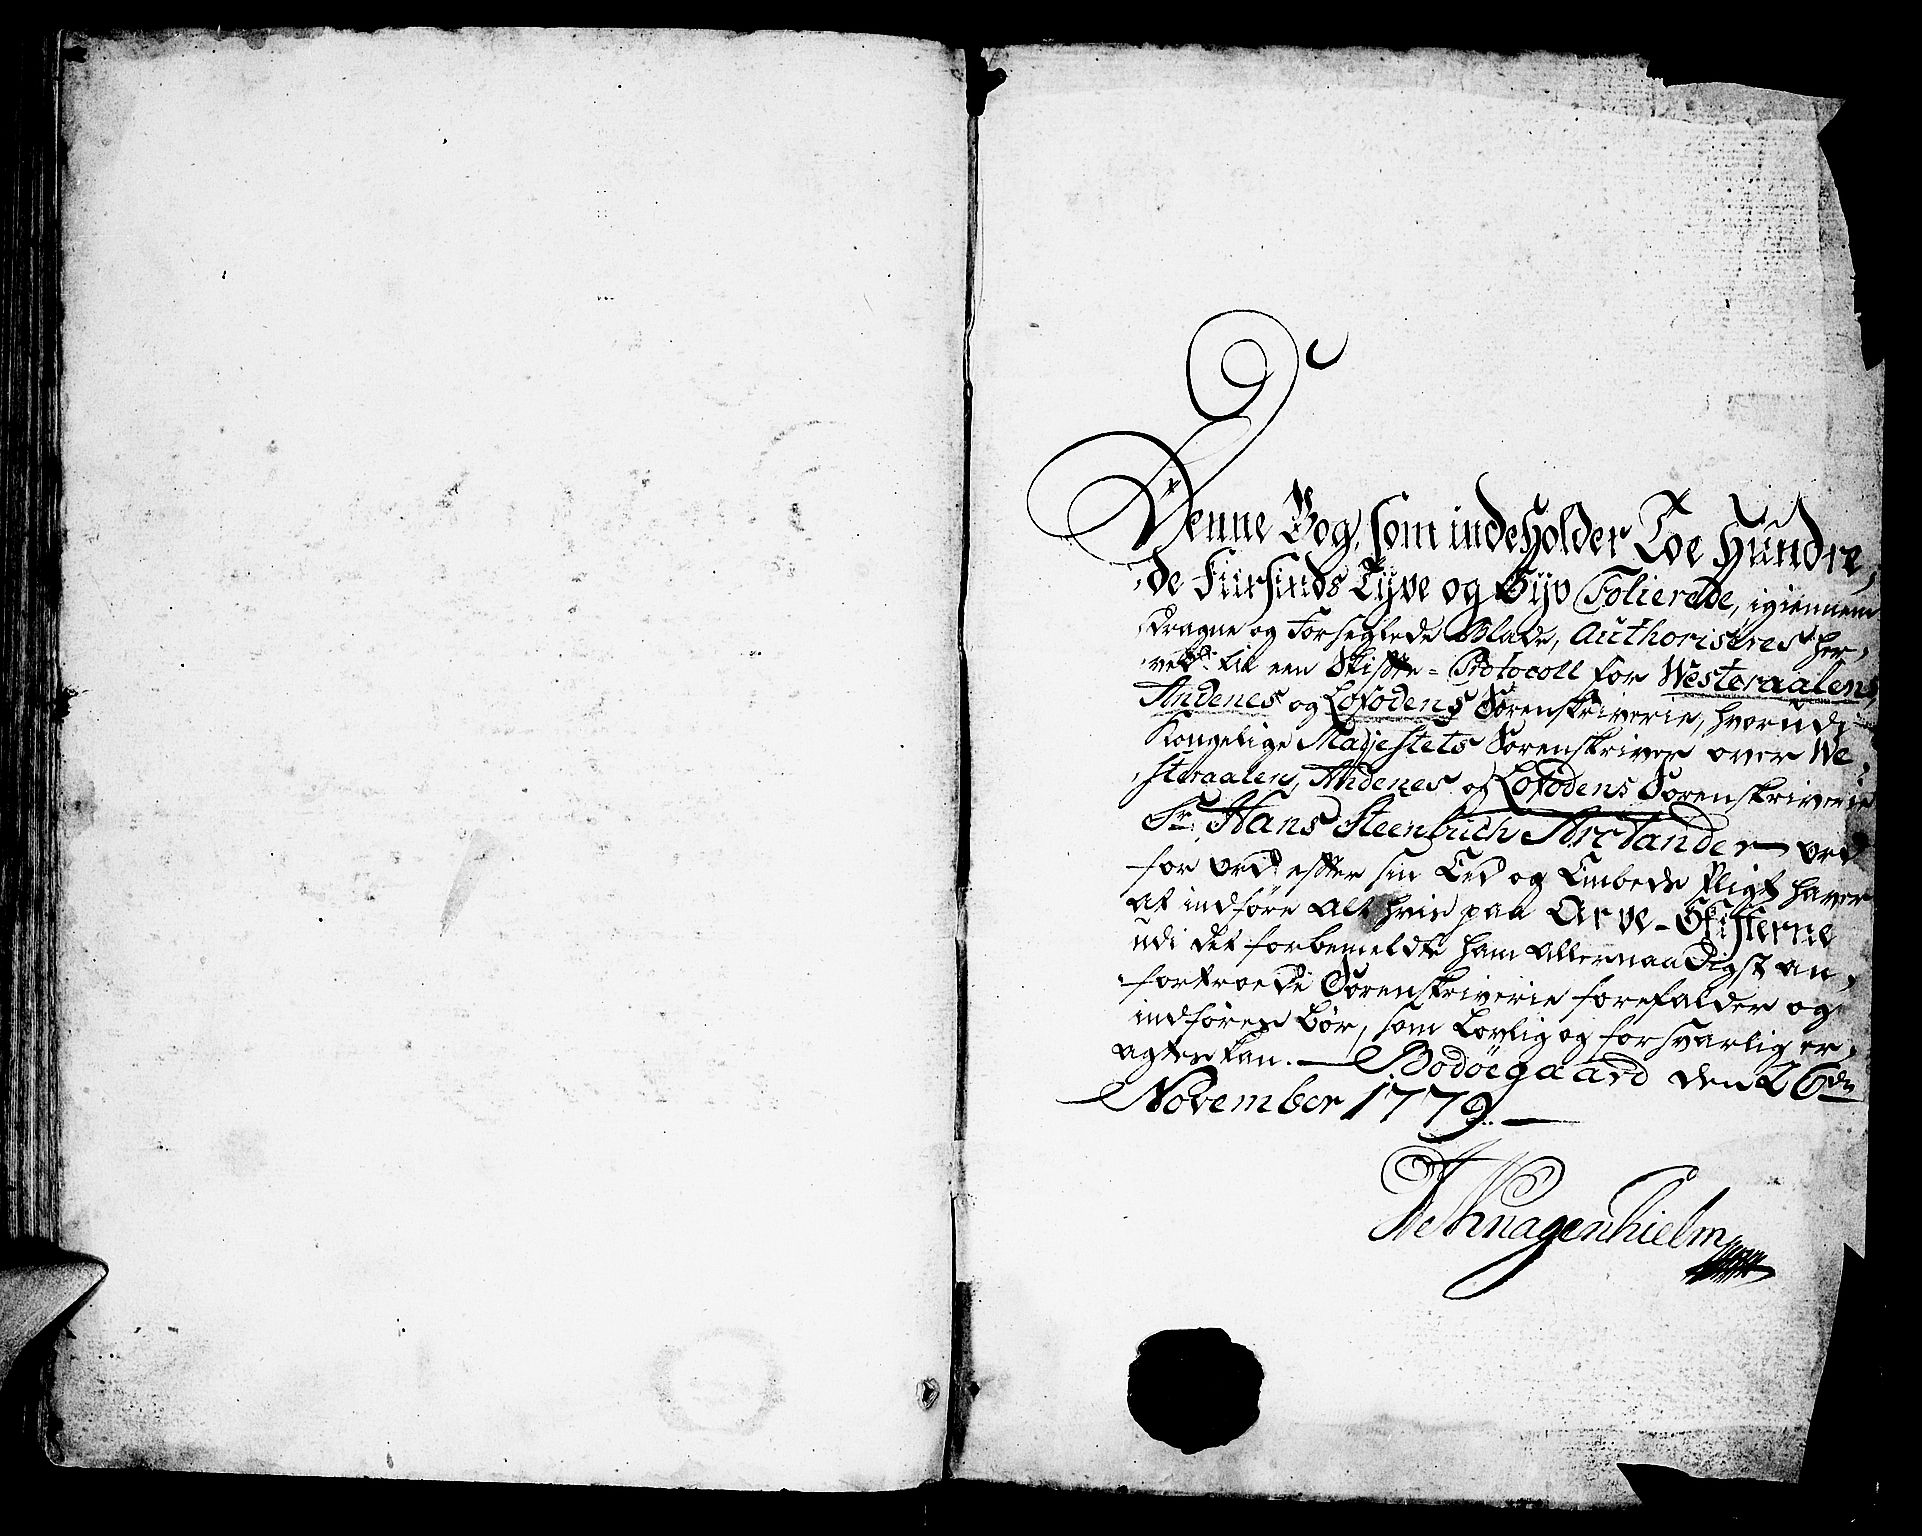 Denne Bog, som indeholder Toe Hundre,
de Fiirsinds Tyve og Syv Folierede, igiennem
dragne og Forseglede Blade, Authoriseres her,
ved til een Skifte-Protocoll for Westeraalens,
Andenes og Lofodens Sorenskriverie, hvorudi
Kongelige Majestets Sorenskriver over We
steraalens, Andenes og Lofodens Sorenskriverie
Sr. Hans Steenbuch Arctander ord
for ord efter sin Eed og Embeds Pligt haver
at indføre alt hvis paa Arve-Skifterne
udi det forbemeldte ham allernaadigst an,
fortroede Sorenskriverie forefalder og
indføres bør, som lovlig og forsvarlig er,
agtes kan. Bodøegaard den 26de
November 1779.
Knagenhielm